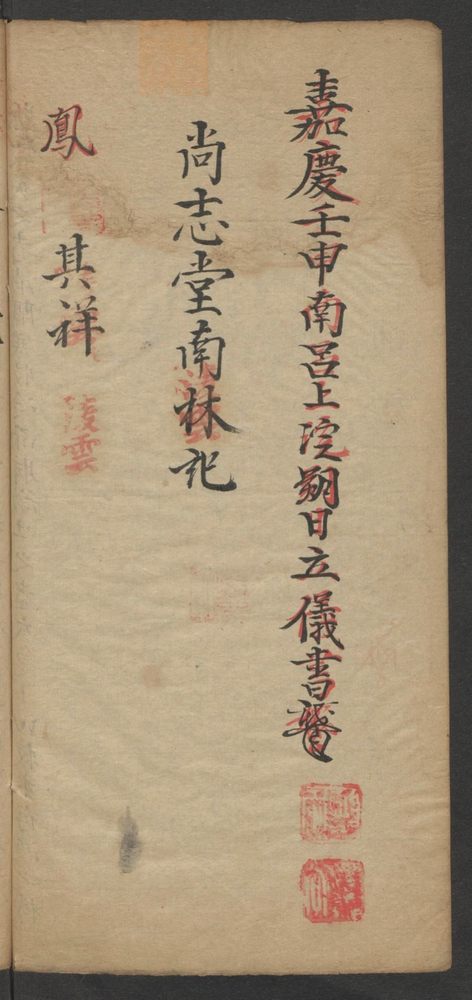 嘉慶壬申南呂上浣朔日立儀書謄
尚志堂南林記
鳳 其祥
陵雲